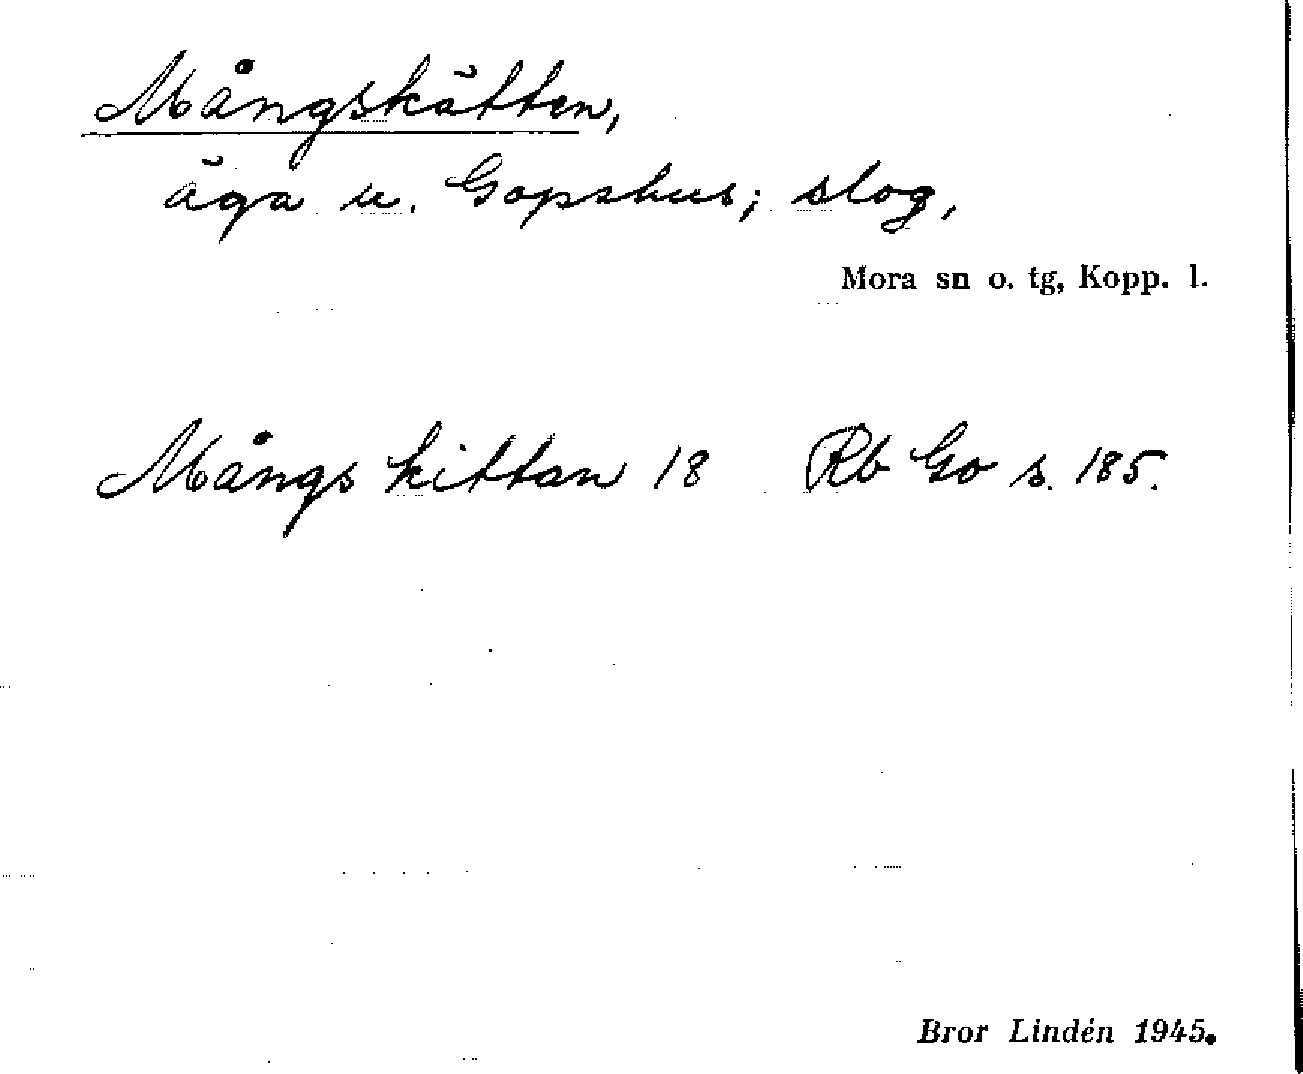 Mångskätten,
äga u. Gopshus; slog,
Mora sn o. tg, Kopp. l.
Mångs kittan 18 Rb Go s. 185.
Bror Lindén 1945.